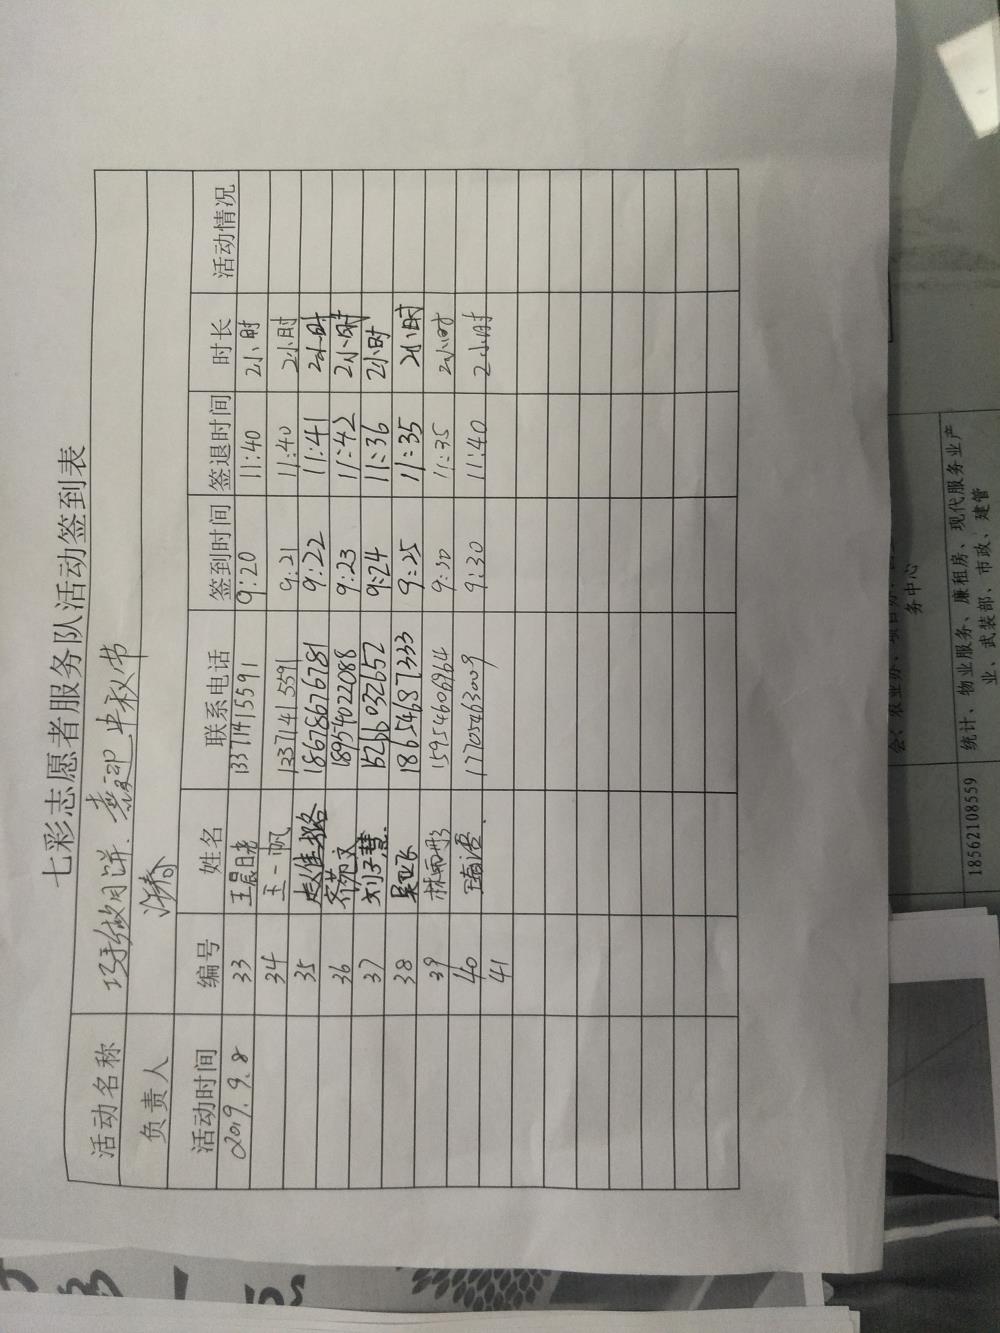 七彩志愿者服务队活动签到表
活动名称 巧手做月饼.喜迎中秋节
负责人
活动时间 编号 姓名 联系电话 签到时间 签退时间 时长 活动情况
2019.9.8 33 王晨曦 13371415591 9:20 11:40 2小时
34 王一帆 13371415591 9:21 11:40 2小时
35 18678676781 9:22 11:41 2小时
36 18954022088 9:23 11:42 2小时
37 刘子慧 15266032652 9:24 11:36 2小时
38 18654687333 9:25 11:35 2小时
39 林雨彤 15954606964 9:30 11:35 2小时
40 17705463009 9:30 11:40 2小时
41
务中心
18562108559 统计、物业服务、廉租房、现代服务业产
业、武装部、市政、建管